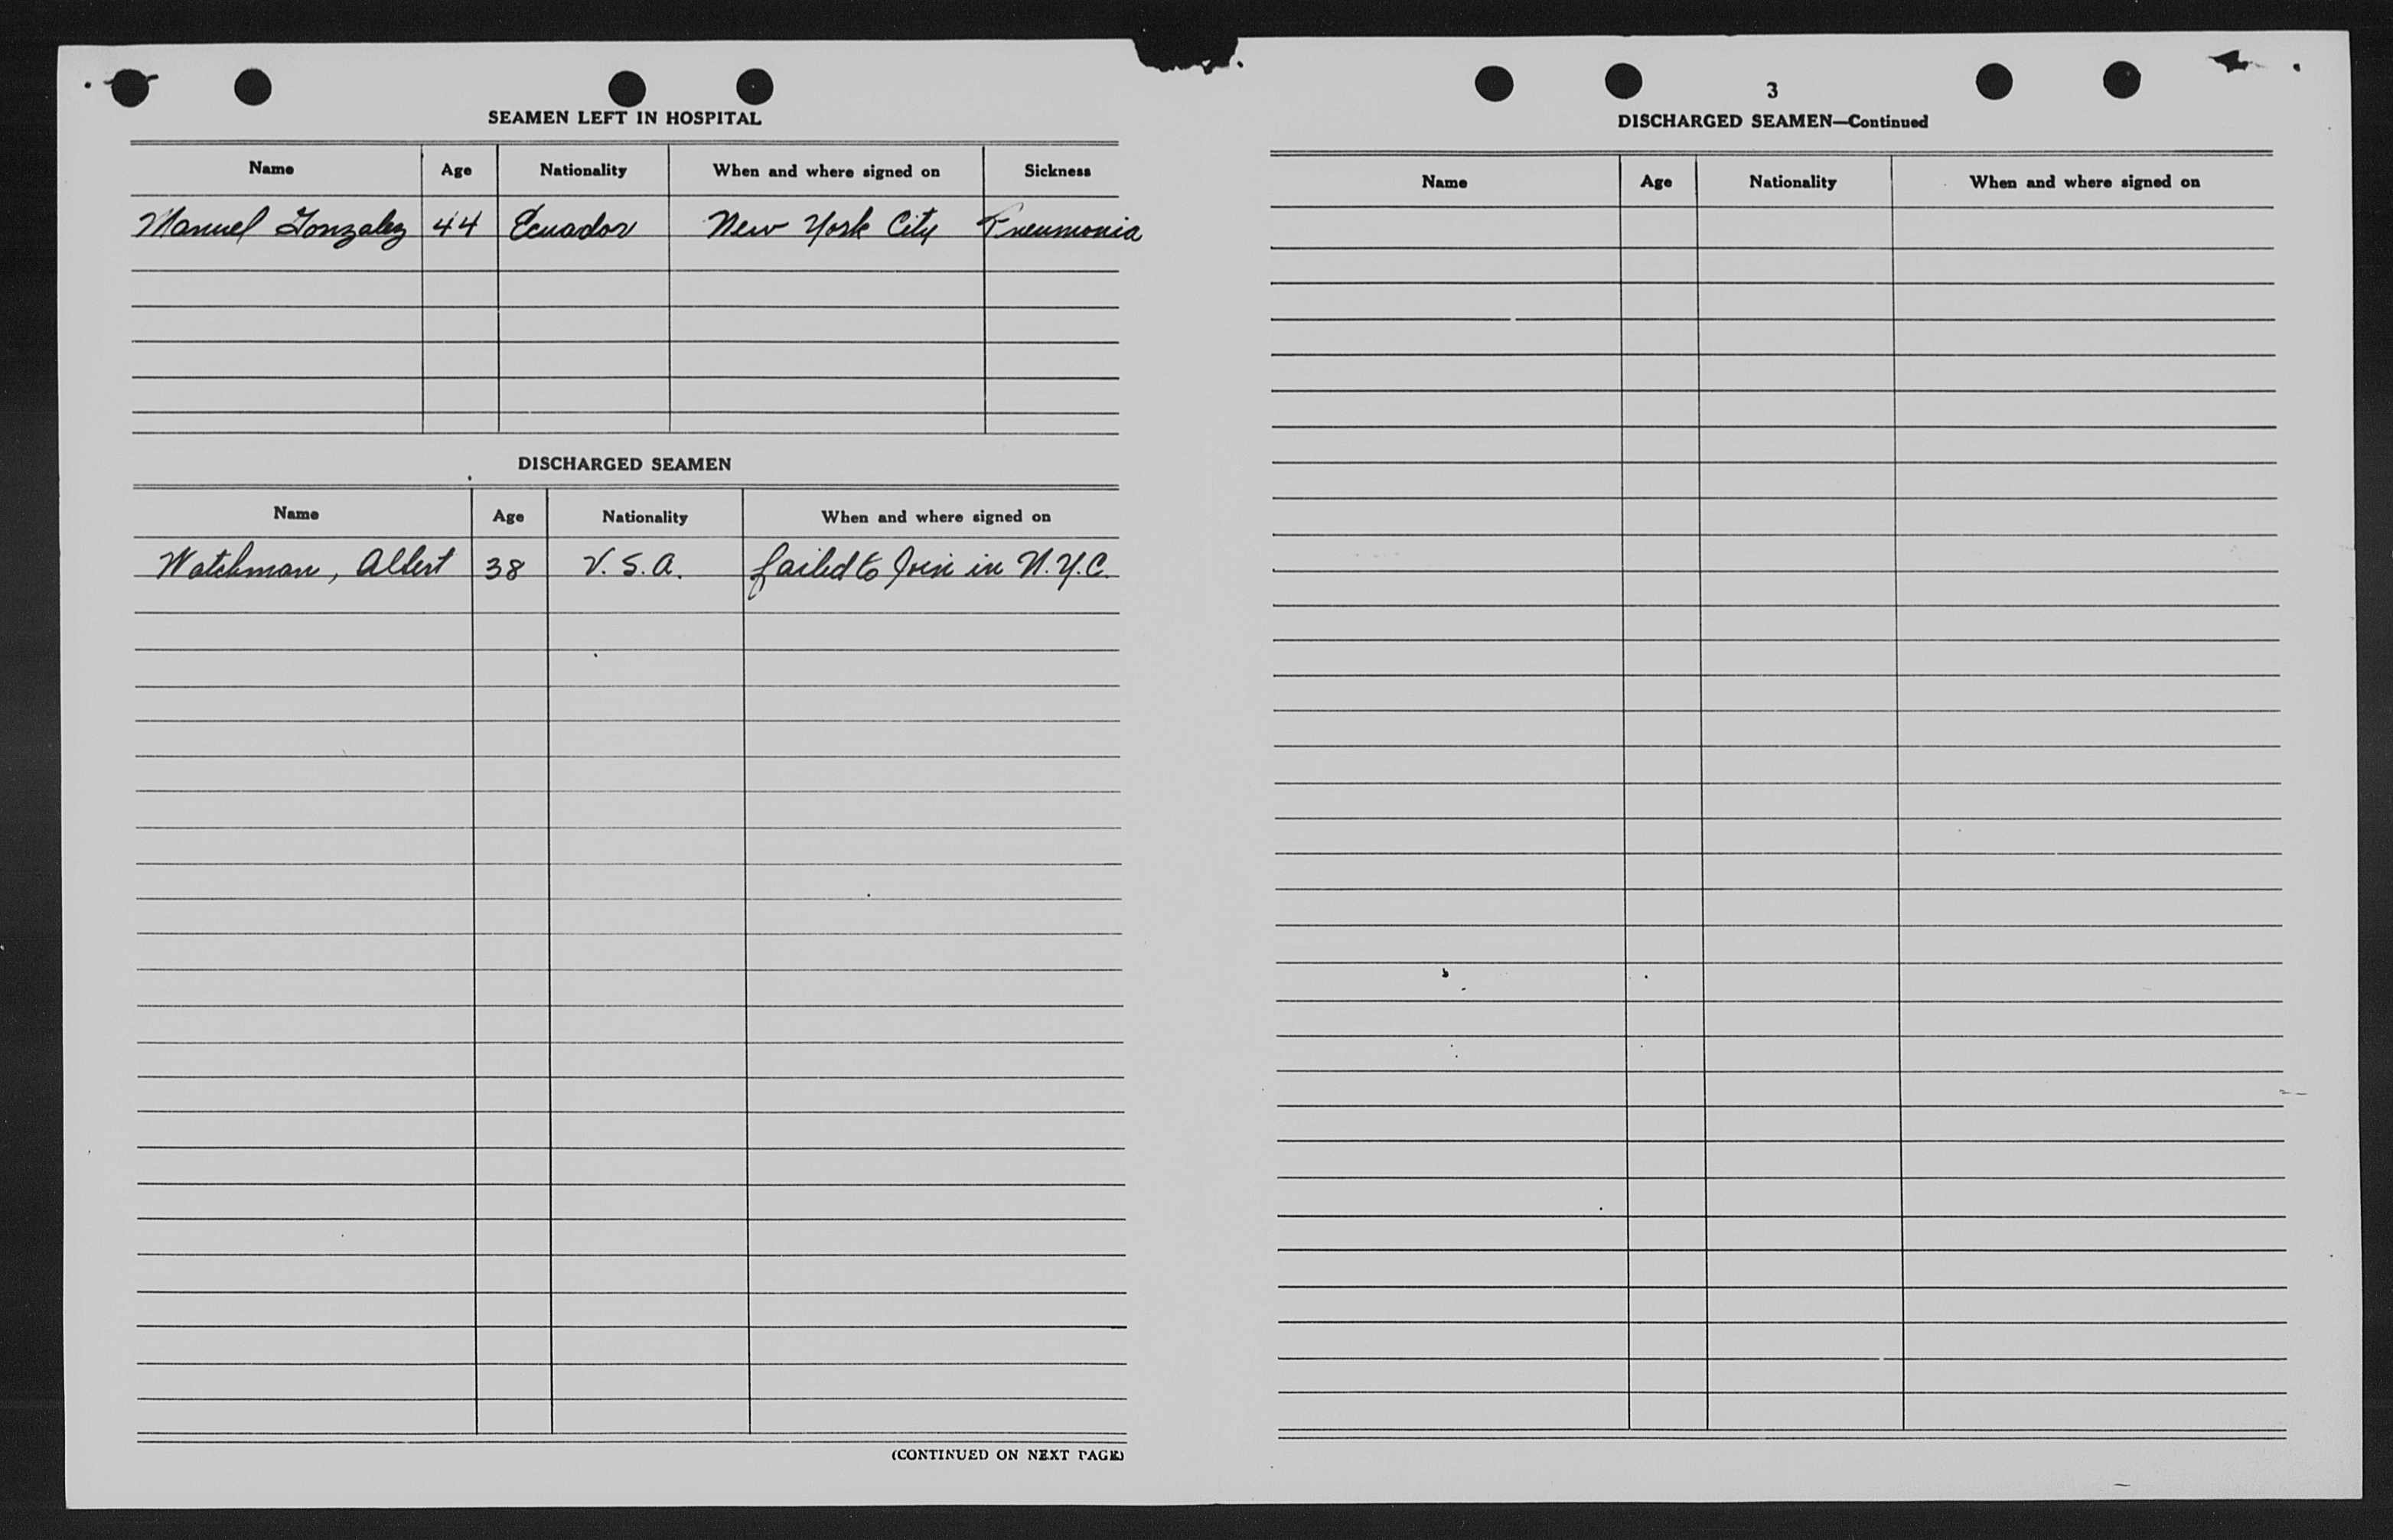 SEAMEN LEFT IN HOSPITAL
Name Age Nationality When and where signed on Sickness
Manuel Gonzalez 44 Ecuador New York City Pneumonia
DISCHARGED SEAMEN
Name Age Nationality When and where signed on
Watchman, Albert 38 U.S.A. failed to Join in N.Y.C.
(CONTINUED ON NEXT PAGE)
3
DISCHARGED SEAMEN—Continued
Name Age Nationality When and where signed on